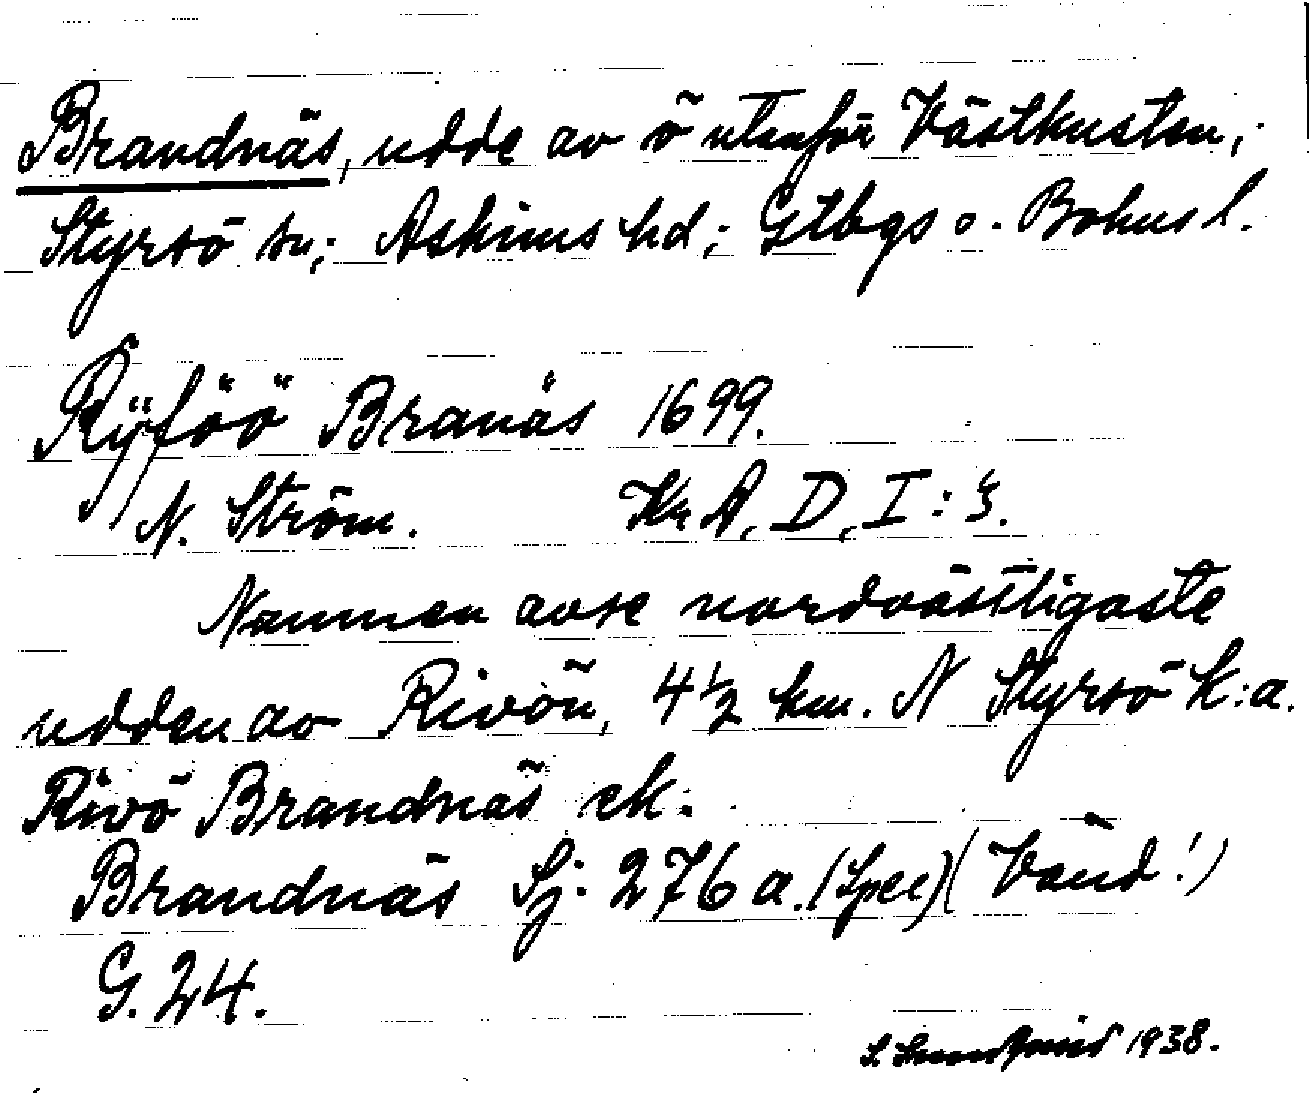 Brandnäs, udde av ö utanför Västkusten;
Styrsö sn; Askims hd; Gtbgs o. Bohus l.
Rÿföö Branäs 1699.
N. Ström. Kr A, D, I: 3.
Namnen avse nordvästligaste
udden av Rivön, 4 1/2 km. N Styrsö k:a.
Rivö Brandnäs ek.
Brandnäs Sj. 276 a. (Spec) (Vänd!)
G. 24.
1938.